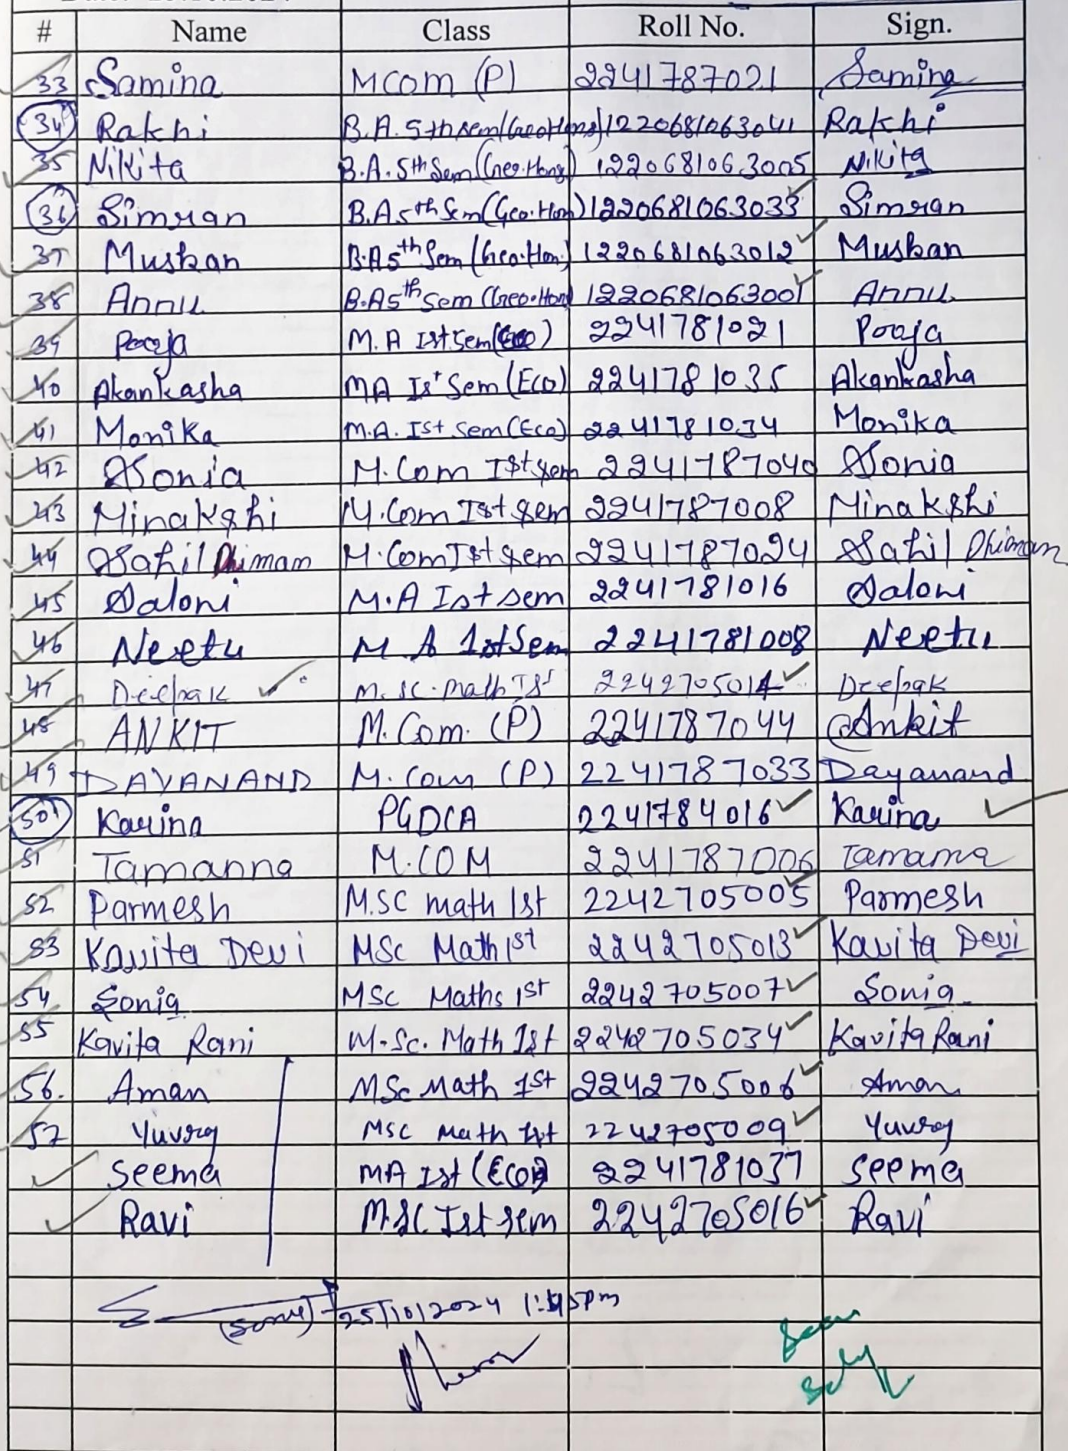 # Name Class Roll No. Sign.
33 Samina MCOM (P) 2241787021 Samina
34 Rakhi B.A. 5th sem (Geo Hons) 1220681063041 Rakhi
35 Nikita B.A. 5th Sem (Geo. Hons) 1220681063005 Nikita
36 Simran B.A 5th Sem (Geo. Hon) 1220681063033 Simran
37 Muskan B.A 5th Sem (Geo. Hon) 1220681063012 Muskan
38 Annu B.A 5th Sem (Geo. Hon) 1220681063001 Annu
39 Pooja M.A Ist Sem (Eco) 2241781021 Pooja
40 Akankasha MA Ist Sem (Eco) 2241781035 Akankasha
41 Monika M.A. Ist Sem (Eco) 2241781034 Monika
42 Sonia M.Com Ist sem 2241787040 Sonia
43 Minakshi M.Com Ist sem 2241787008 Minakshi
44 Sahil Dhiman M.Com Ist sem 2241787024 Sahil Dhiman
45 Saloni M.A Ist sem 2241781016 Saloni
46 Neetu M.A 1st Sem 2241781008 Neetu
47 Deepak M.Sc. Math Ist 2242705014 Deepak
48 ANKIT M.Com. (P) 2241787044 Ankit
49 DAYANAND M.Com (P) 2241787033 Dayanand
50 Karina PGDCA 2241784016 Karina
51 Tamanna M.COM 2241787006 Tamanna
52 Parmesh M.SC math 1st 2242705005 Parmesh
53 Kavita Devi MSc Math 1st 2242705013 Kavita Devi
54 Sonia MSc Maths 1st 2242705007 Sonia
55 Kavita Rani M.Sc. Math 1st 2242705034 Kavita Rani
56. Aman MSc Math 1st 2242705006 Aman
57 Yuvraj MSc Math 1st 2242705009 Yuvraj
Seema MA Ist (Eco) 2241781037 Seema
Ravi M.SC Ist sem 2242705016 Ravi
25/10/2024 1:45pm